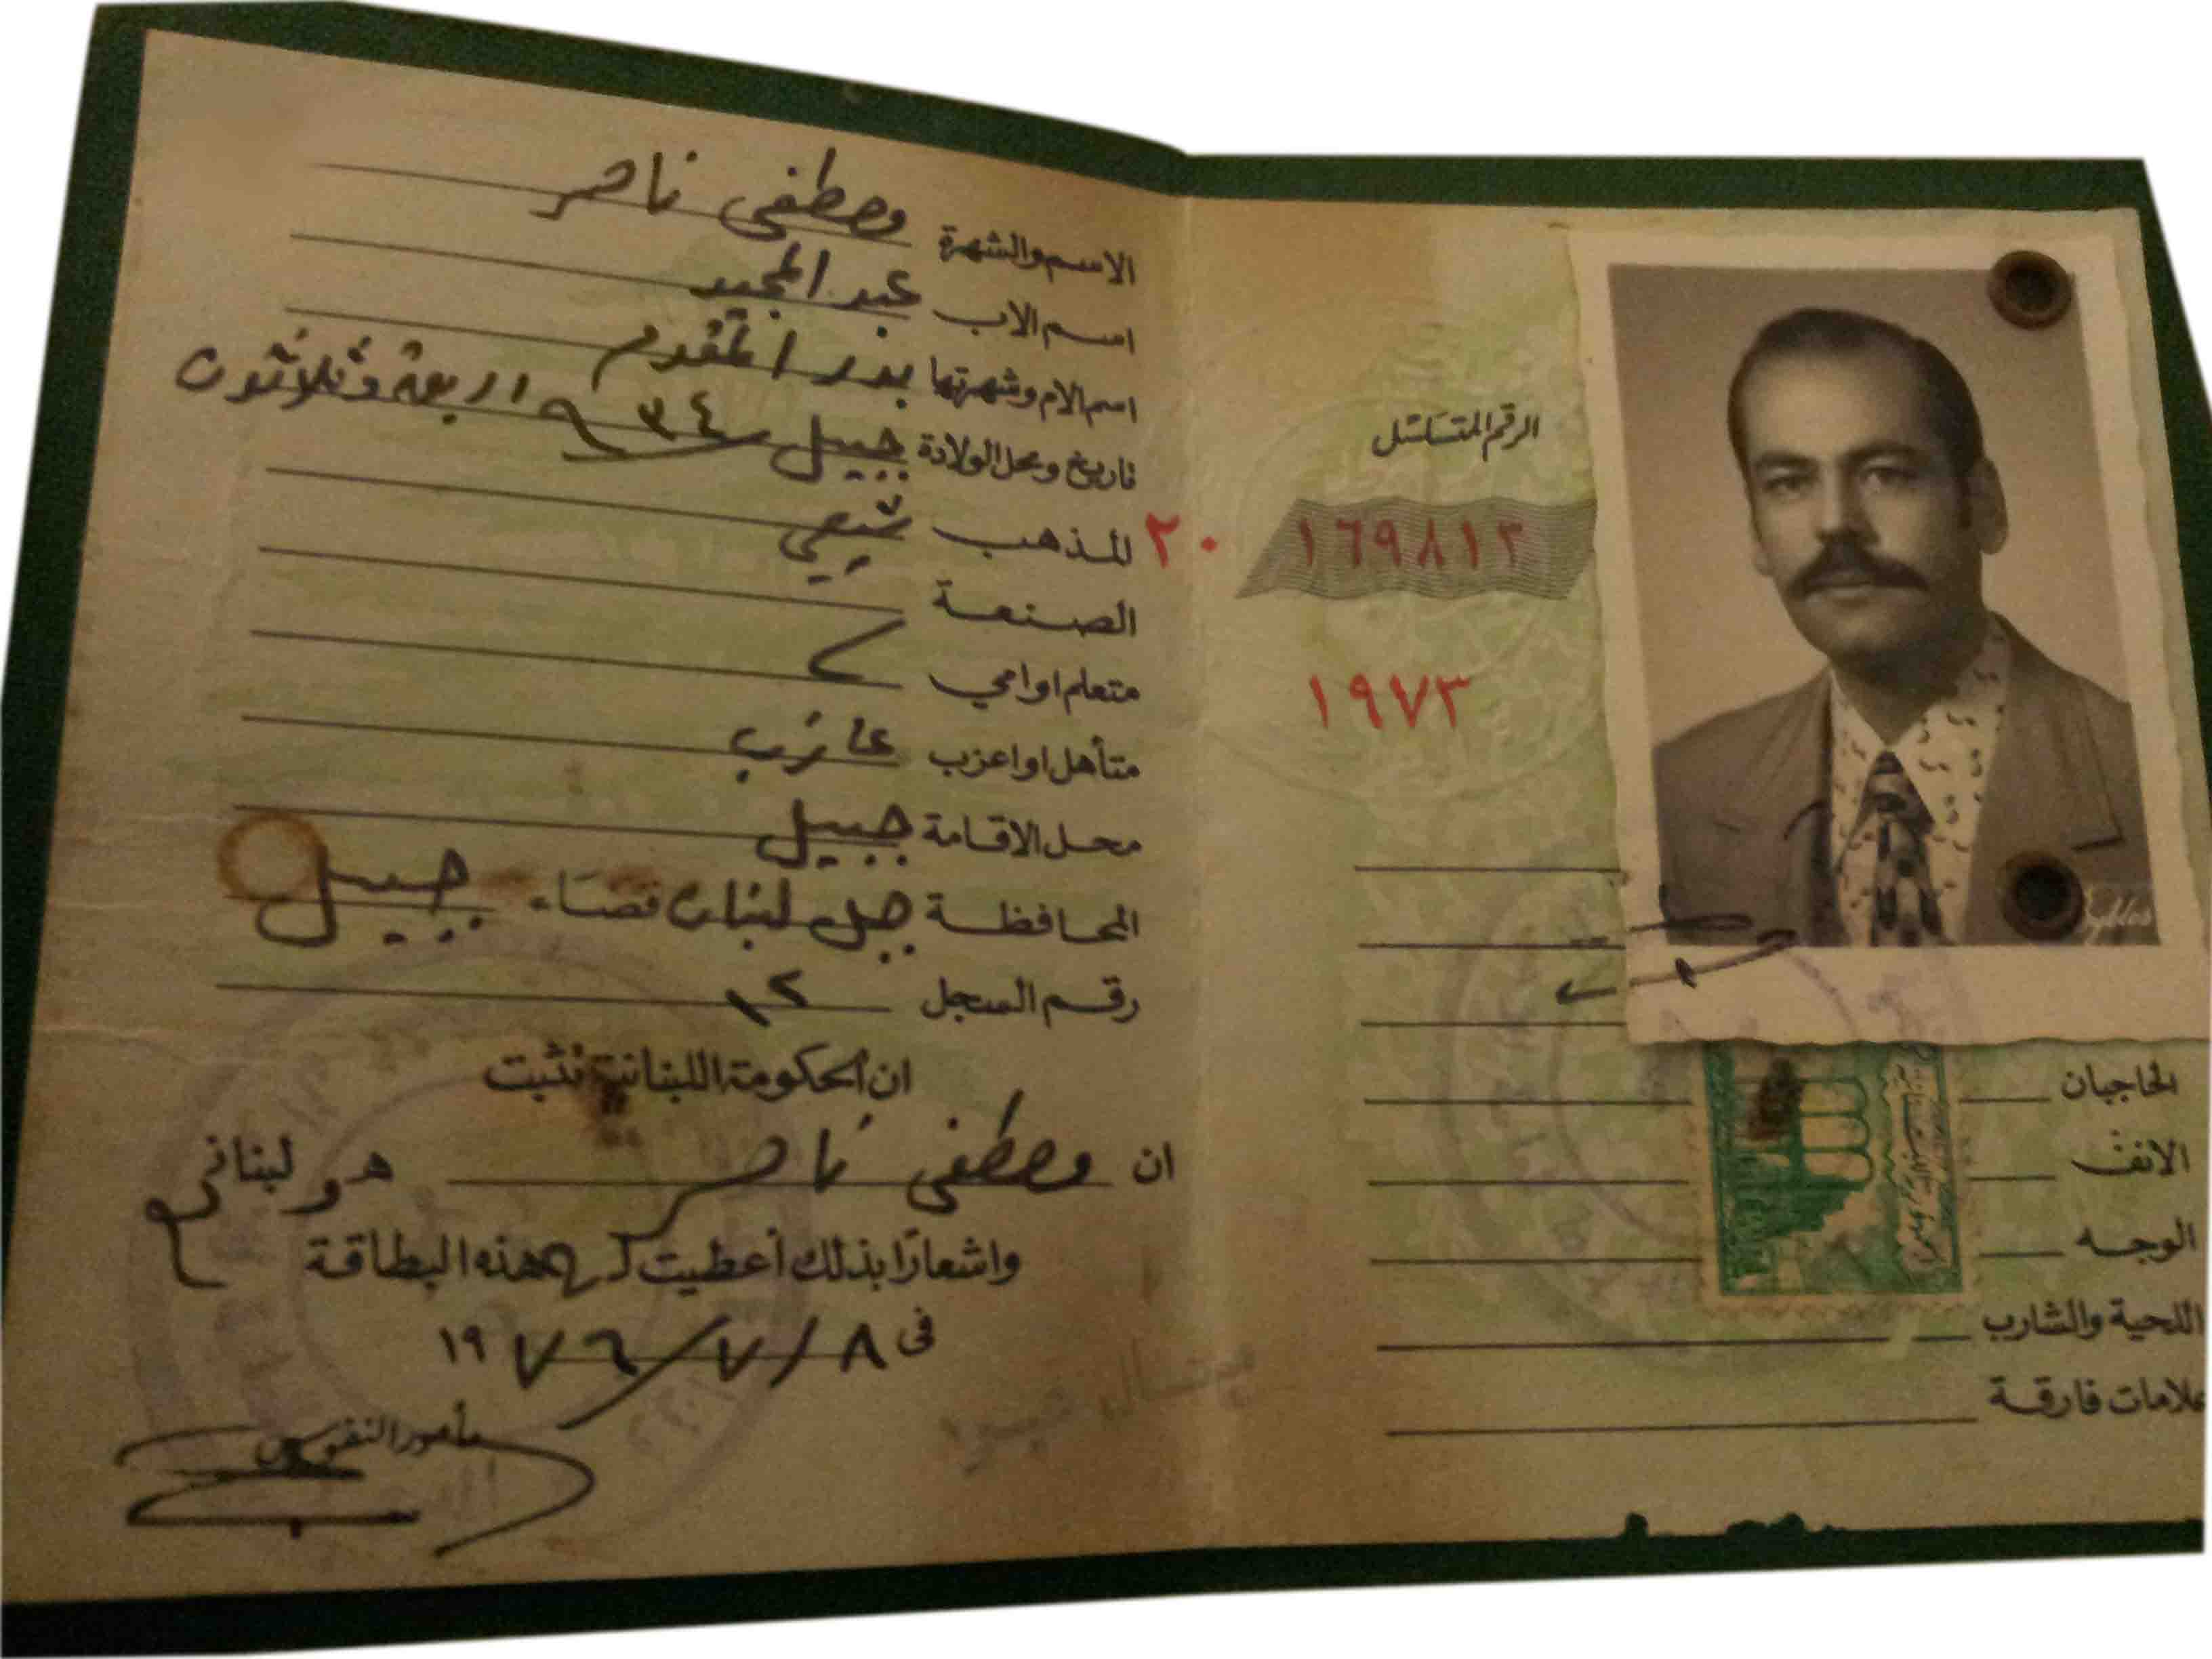 الاسم والشهرة مصطفى ناصر
اسم الاب عبد المجيد
اسم الام وشهرتها بدر المقدم
تاريخ ومحل الولادة جبيل ٩٣٤ اربعة وثلاثون
المذهب شيعي
الصنعة
متعلم او امي
متأهل او اعزب عازب
محل الاقامة جبيل
المحافظة جبل لبنان قضاء جبيل
رقم السجل ١٢
ان الحكومة اللبنانية تثبت
ان مصطفى ناصر هو لبناني
واشعارًا بذلك أعطيت له هذه البطاقة
فى ٨/٧/١٩٧٦
مأمور النفوس
الرقم المتسلسل
٢٠ ١٦٩٨١٢
١٩٧٣
Byblos
الحاجبان
الانف
الوجه
اللحية والشارب
علامات فارقة